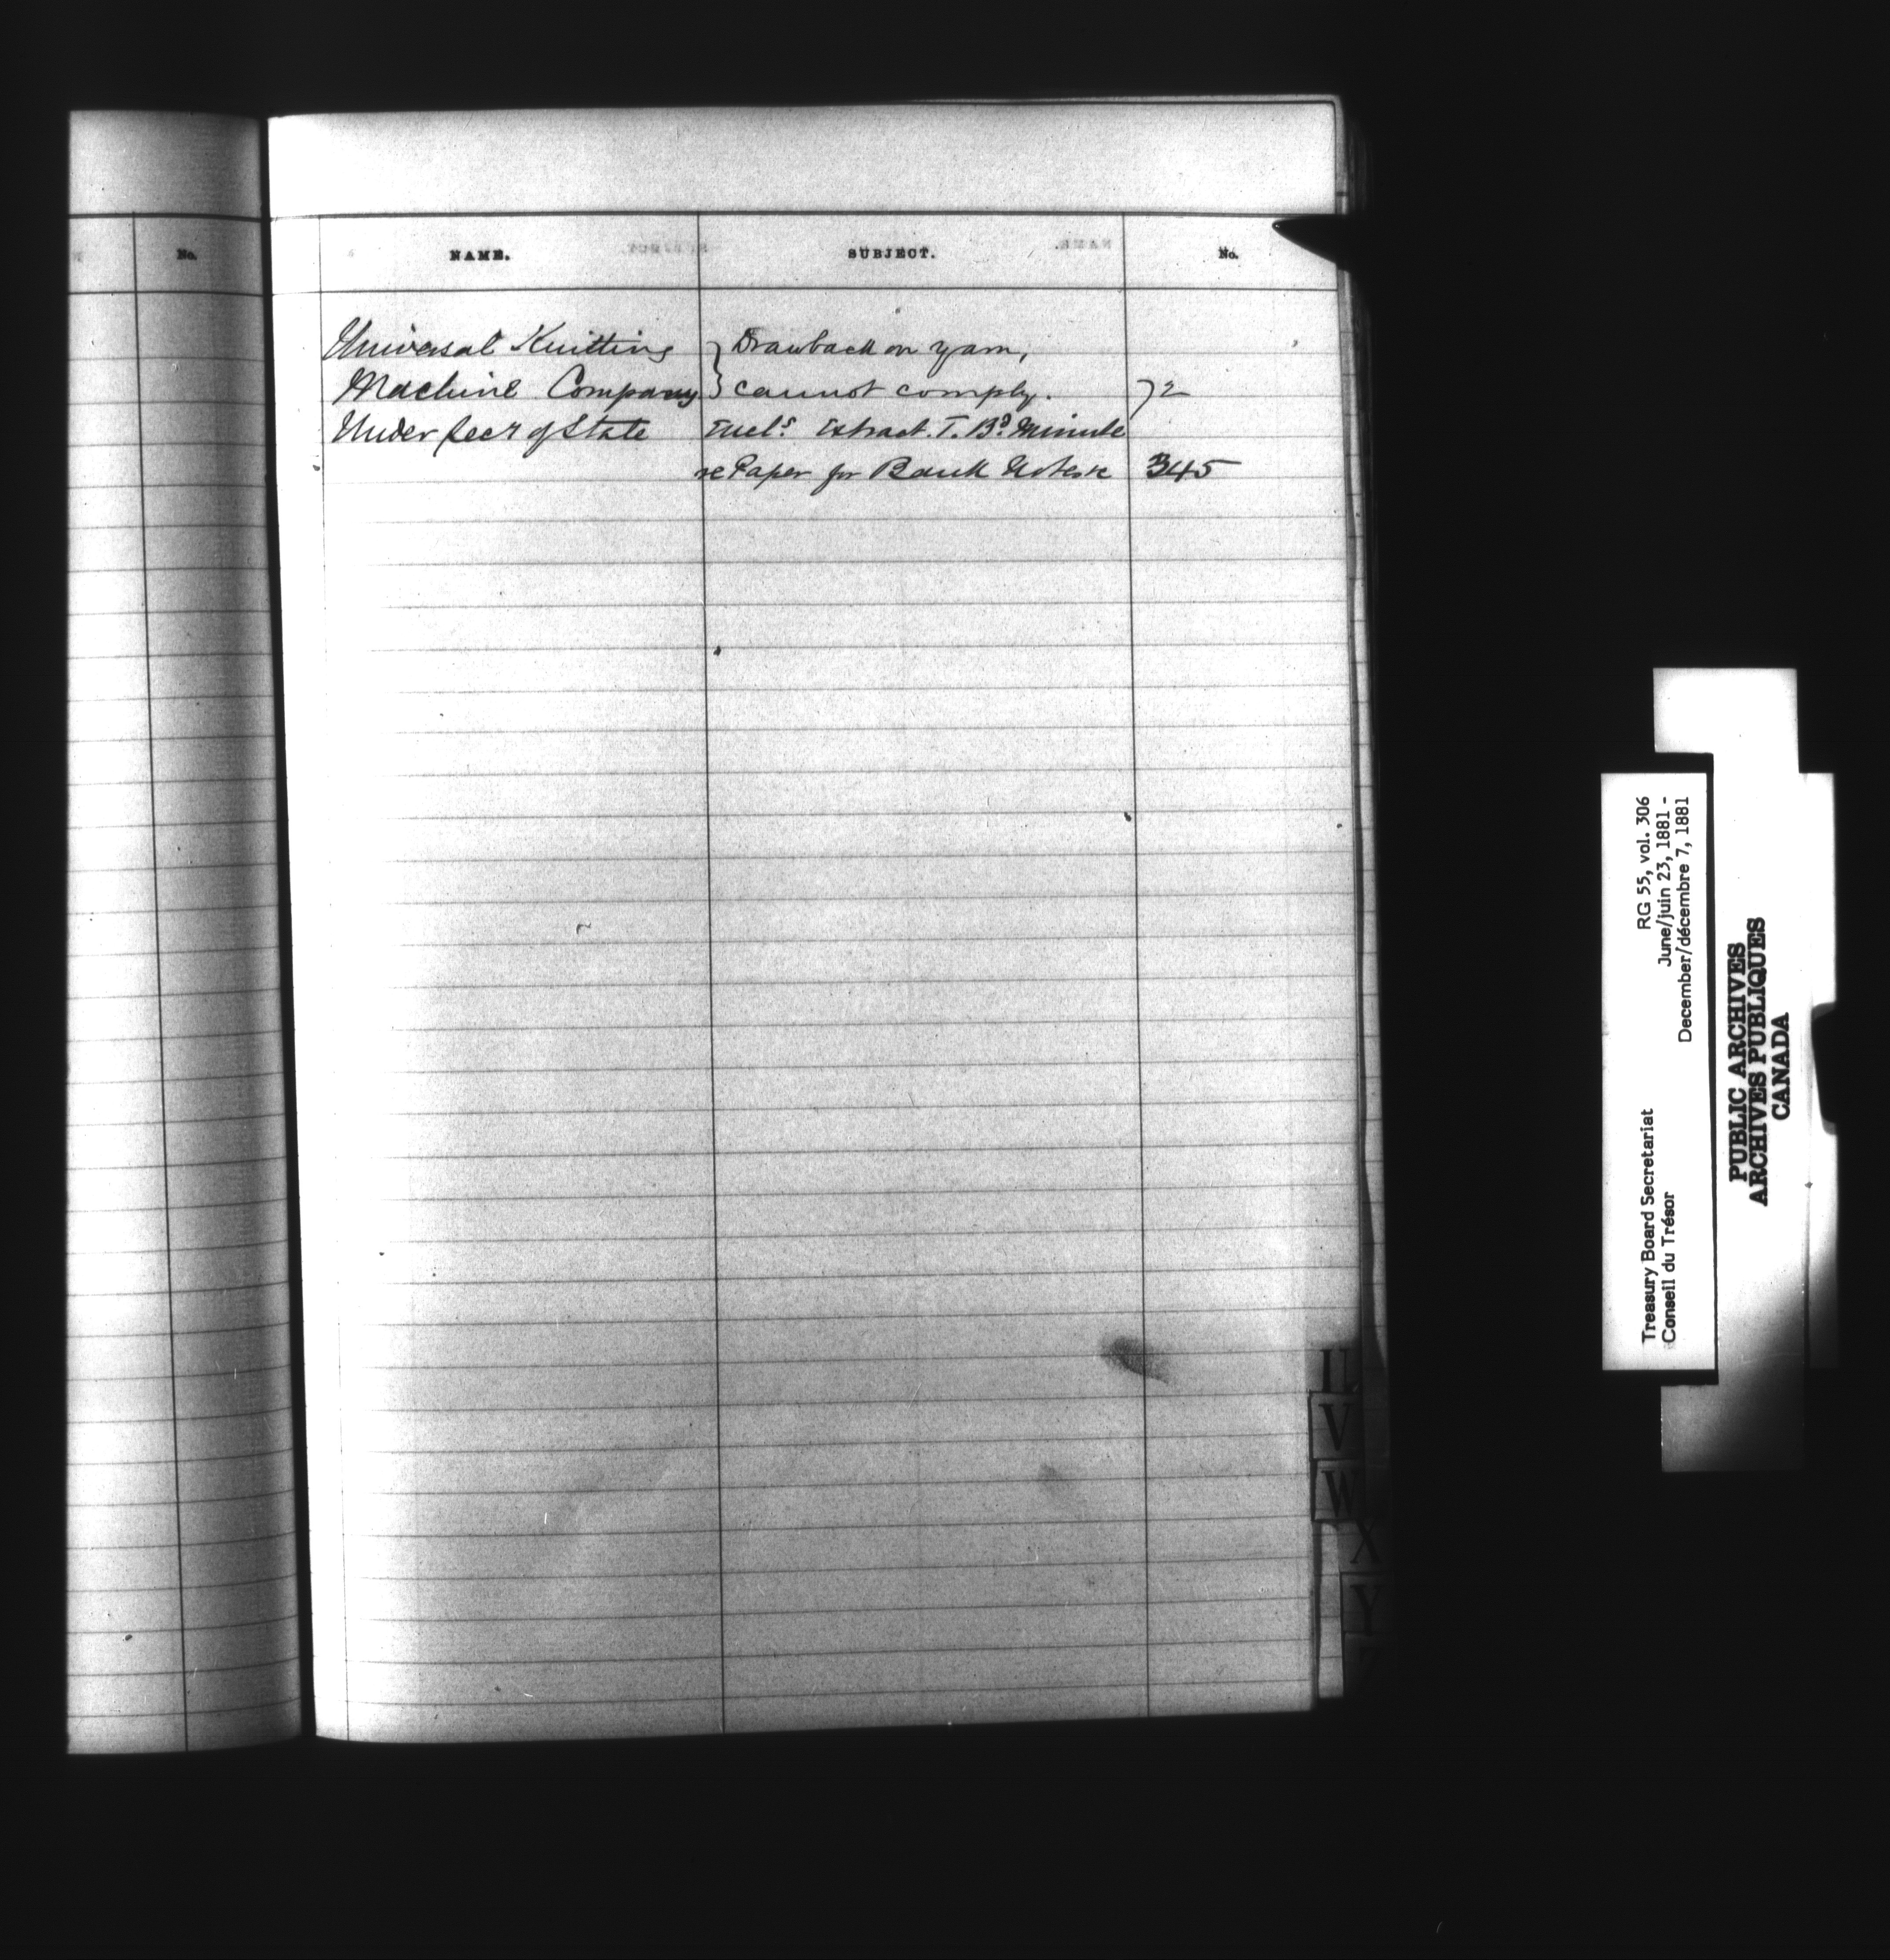 No.
NAME. SUBJECT. No.
Universal Knitting } Drawback on yarn,
Machine Company } cannot comply. 72
Under Secy of State Encls Extract T. Bd Minute
re Paper for Bank Notes re 345
L
V
W
X
Y
RG 55, vol. 306
June/juin 23, 1881 -
December/décembre 7, 1881
Treasury Board Secretariat
Conseil du Trésor
PUBLIC ARCHIVES
ARCHIVES PUBLIQUES
CANADA